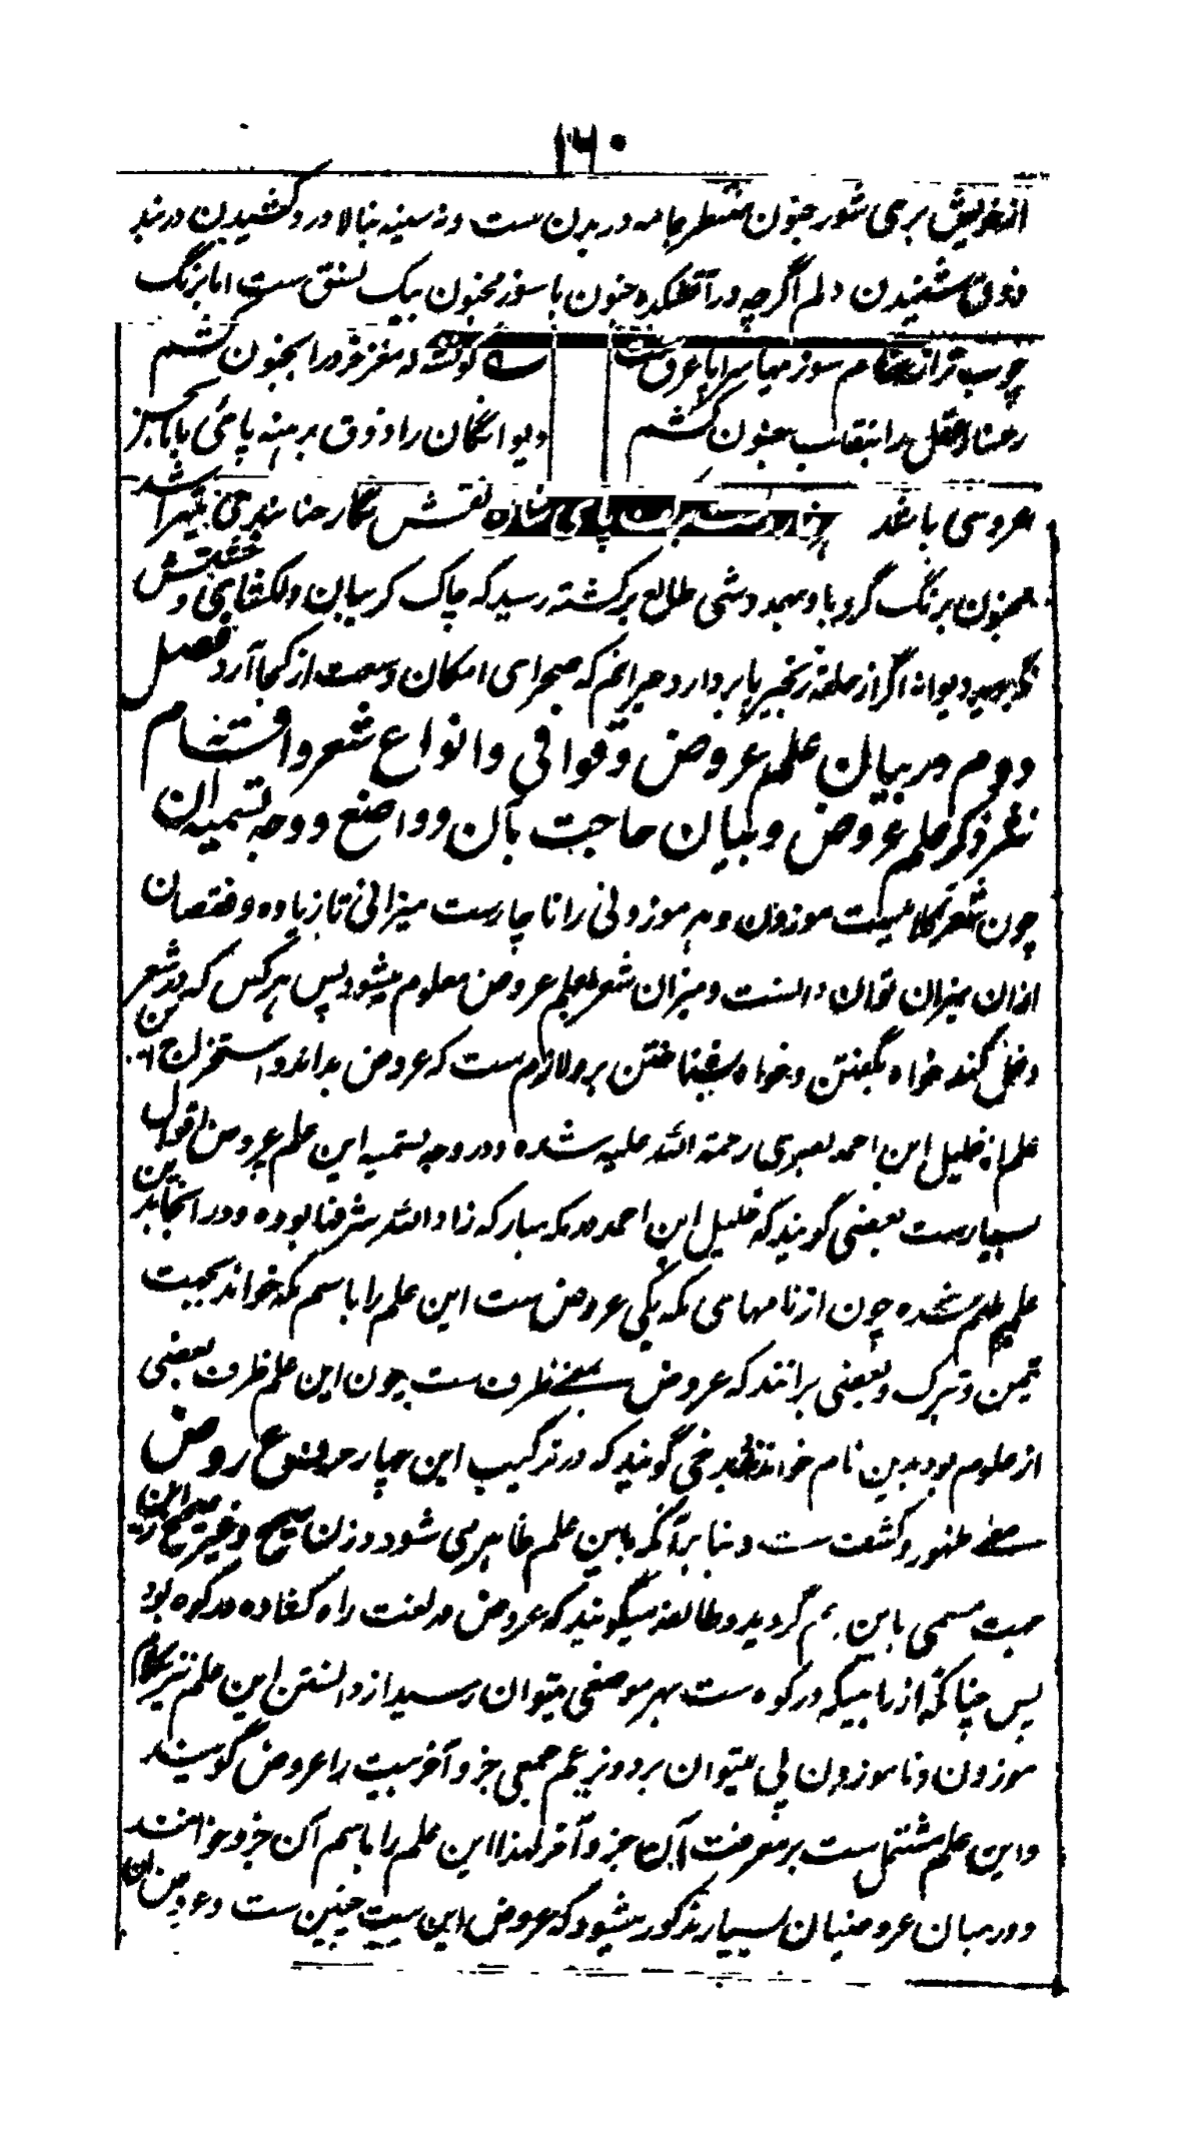 ۱۶۰
از خویش بری شور جنون منتظر جامه دریدن ست و نه سینه بنالا درد کشیدن در بند
ذوق شنیدن دلم اگرچه در آتشکده جنون با سوز مجنون بیک نسق ست اما برنگ
چوب تر از خام سوز مهیا سراپا عرق ست
که مغز خرد را بجنون کشم
رعنا و عقل را بنقاب جنون کشم
دیوانگان را ذوق برهنه پائی پا
عروسی باشد نقش نگار حنا
مجنون برنگ گردباد بهمه دشمی طالع برگشته رسید که چاک گریبان دلکشای و
دیوانه اگر از حلقه زنجیر پا بردارد حیرانم که صحرای امکان وسعت از کجا آرد فصل
دوم در بیان علم عروض و قوافی و انواع شعر و اقسام
نثر ذکر علم عروض و بیان حاجت بآن و واضع و وجه تسمیه آن
چون شعر کلامیست موزون و هر موزونی را ناچارست میزانی تا زیاده و نقصان
ازان میزان توان دانست و میزان شعر بعلم عروض معلوم میشود پس هر کس که در شعر
دخل کند خواه بگفتن و خواه بشناختن برو لازم ست که عروض بداند و استخراج این
علم از خلیل ابن احمد بصری رحمة الله علیه شده و در وجه تسمیه این علم بعروض اقوال
بسیارست بعضی گویند که خلیل ابن احمد در مکه مبارکه زادالله شرفنا بوده و در انجا بدین
علم ملهم شده چون از نامهای مکه یکی عروض ست این علم را باسم مکه خواند بجهت
تیمن و تبرک و بعضی برانند که عروض بمعنی طرف ست چون این علم طرف بعضی
از علوم بود بدین نام خواندند برخی گویند که در ترکیب این چهار حرف ع روض
معنی ظهور و کشف ست و بنا برآنکه باین علم ظاهر می شود وزن صحیح و غیر صحیح ازین
جهت مسمی باین اسم گردید و طائفه میگویند که عروض در لغت راه کشاده در کوه بود
پس چنانکه از راهیکه در کوه ست بهر موضعی میتوان رسید از دانستن این علم نیز بکلام
موزون و ناموزون پی میتوان برد و بزعم جمعی جزو آخر بیت را عروض گویند
و این علم مشتمل ست بر معرفت آن جزو آخر لهذا این علم را باسم آن جزو خوانند
و در میان عروضیان بسیار مذکور میشود که عروض این بیت چنین ست و عروض آن